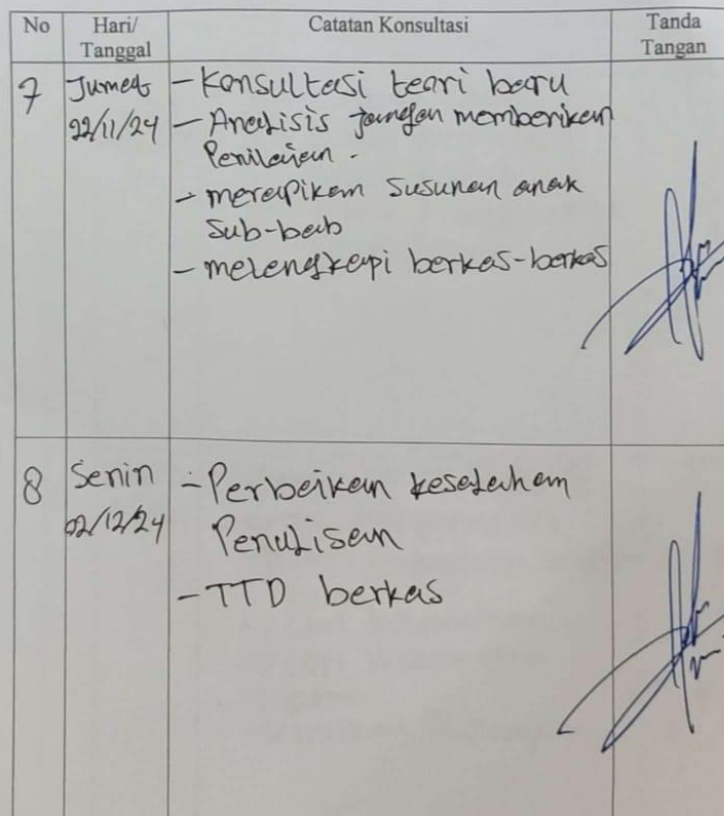 No
Hari/
Tanggal
Catatan Konsultasi
Tanda
Tangan
7
Jumat
22/11/24
- Konsultasi teori baru
- Analisis jangan memberikan
Penilaian.
- merapikan susunan anak
Sub-bab
- melengkapi berkas-berkas
8
Senin
02/12/24
- Perbaikan kesalahan
Penulisan
- TTD berkas